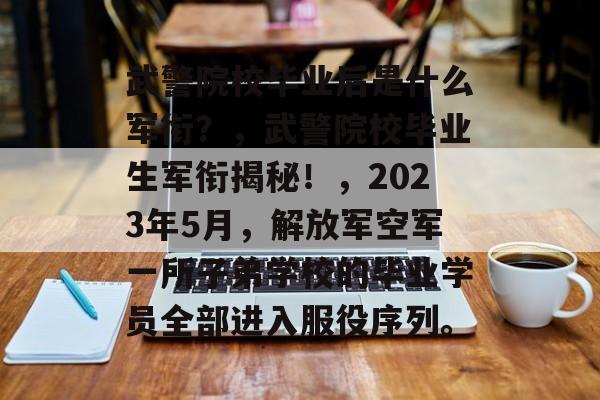 武警院校毕业后是什么
军衔？，武警院校毕业
生军衔揭秘！，202
3年5月，解放军空军
一所子弟学校的毕业学
员全部进入服役序列。